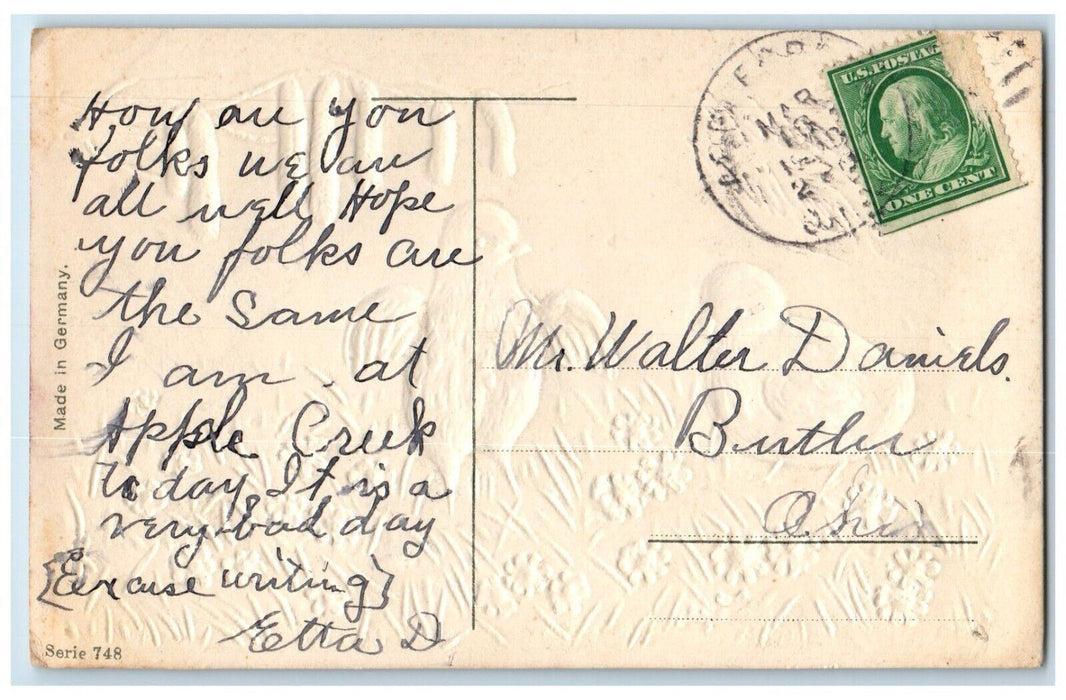 How are you
folks we are
all well Hope
you folks are
the Same
I am at
Apple Creek
to day. It is a
very bad day
{Excuse writing}
Etta D
Made in Germany.
Serie 748
MAR
U.S. POSTAG
ONE CENT
Mr. Walter Daniels.
Butler
Ohio